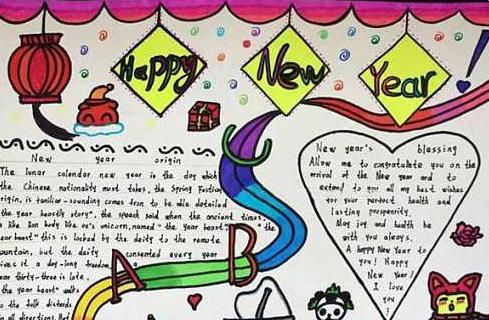 Happy New Year!
New year origin
The lunar calendar new year is the day which
the Chinese nationality most takes, the Spring Festival
origin, is familiar-sounding comes from to be able detailed
the year beastly story", the speech said when the ancient times,
a like lion body like ox's unicorn, named "the year beast", "the
year beast" this is locked by the deity to the remote
mountain, but the deity consented every year
gives it a day-long freedom
year thirty-three is late,
the year beast" walks
to the folk disturbs
in all directions. But
C
B
A
New year's blessing
Allow me to congratulate you on the
arrival of the New year and to
extend to you all my best wishes
for your perfect health and
lasting prosperity.
May joy and health be
with you always.
A happy New Year to
you! Happy
New Year!
I love
you
!